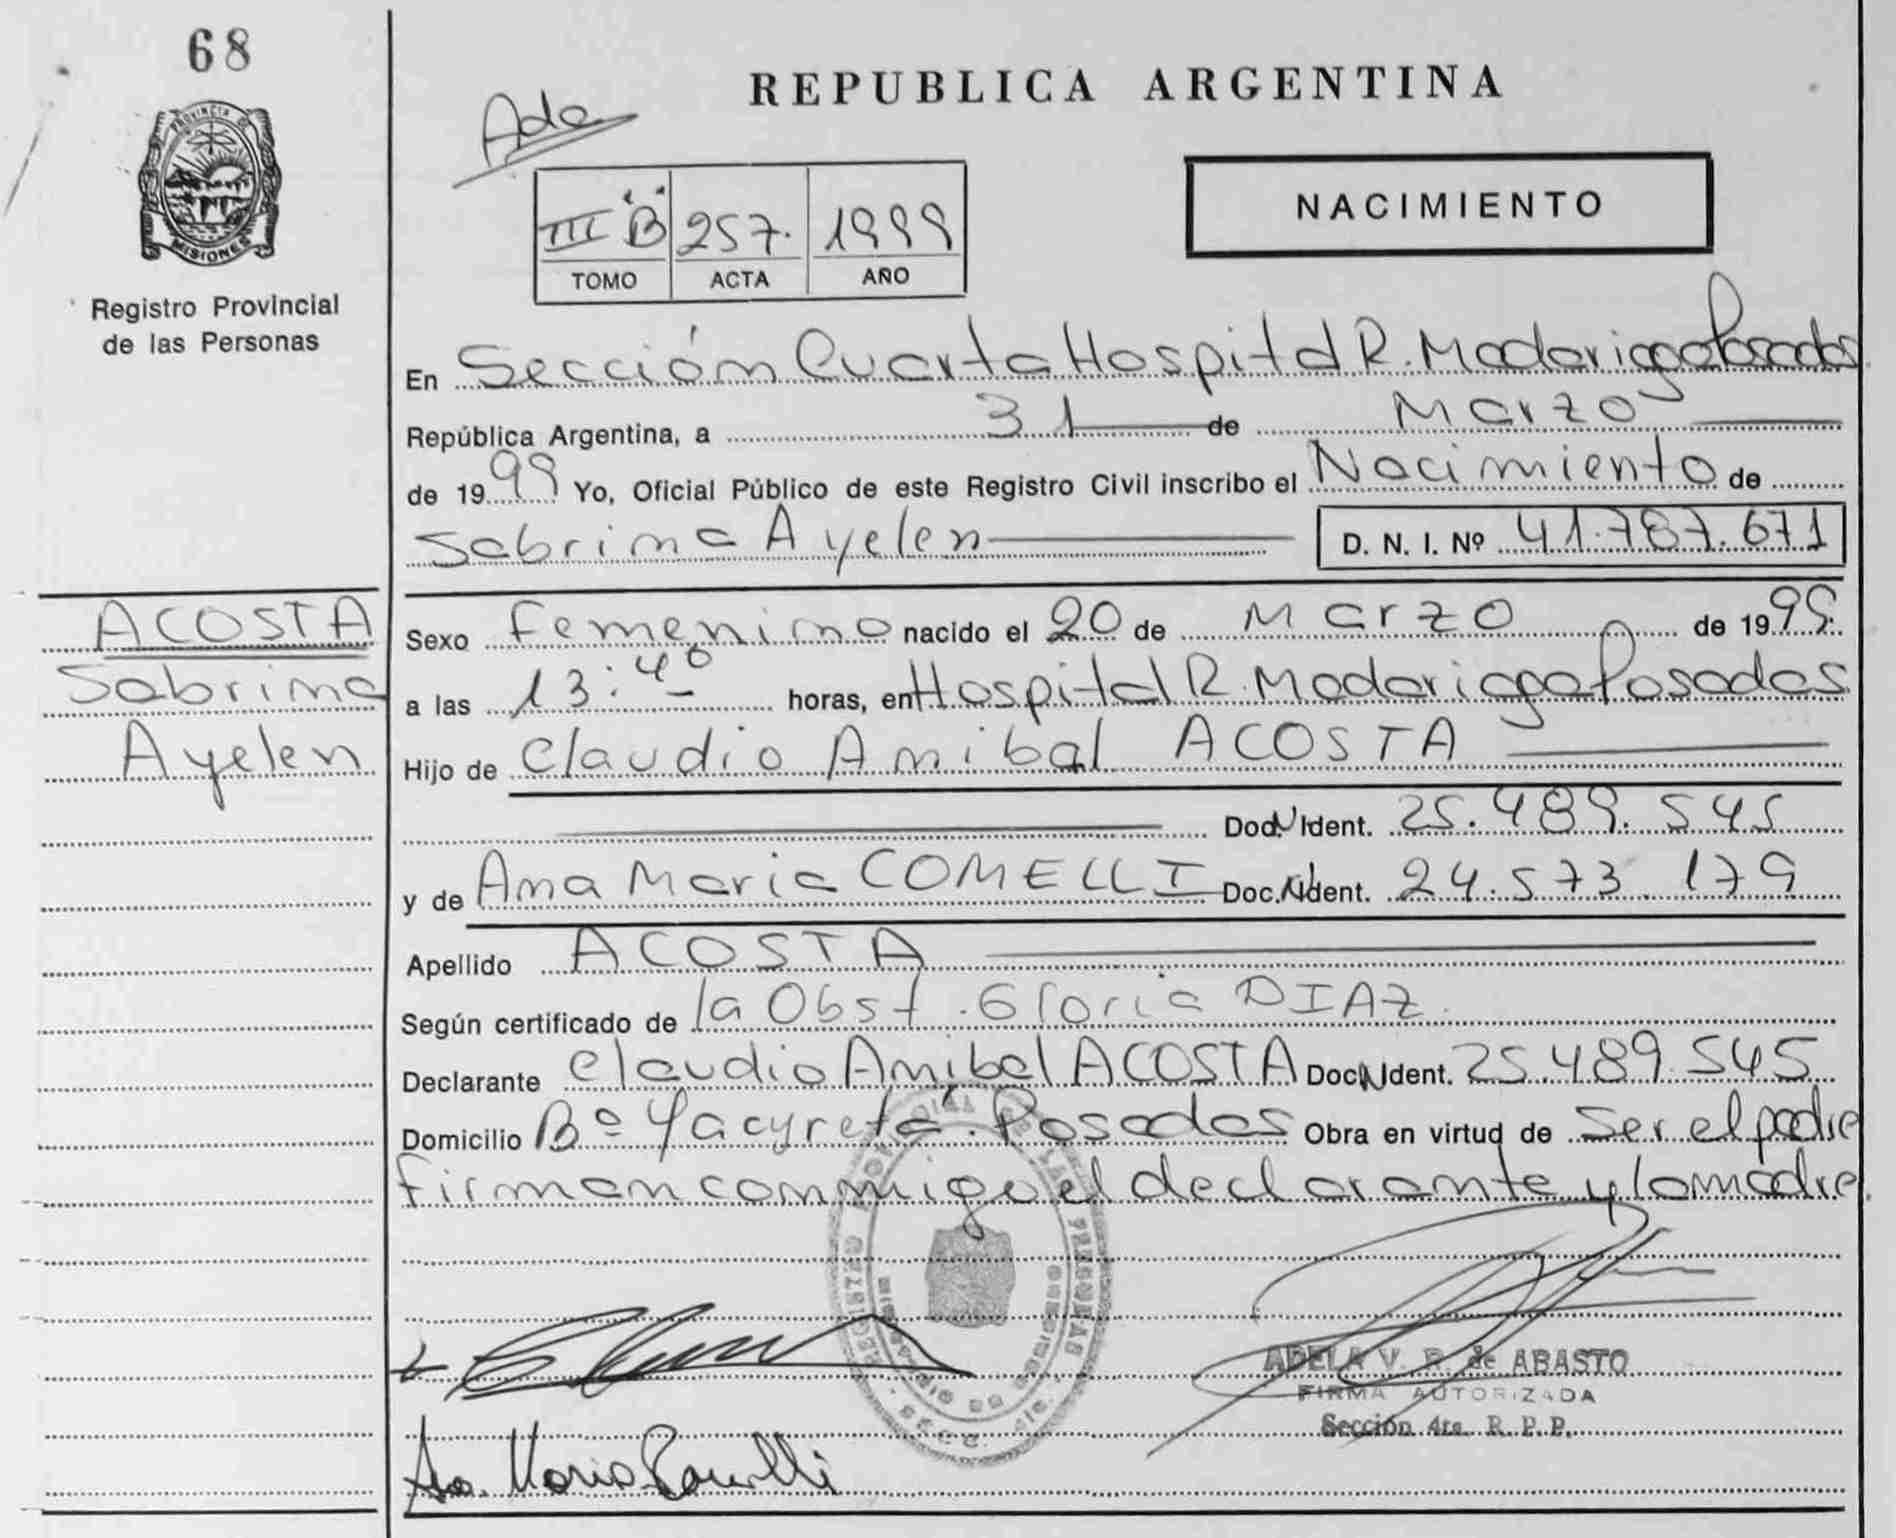 68
PROVINCIA DE
MISIONES
Registro Provincial
de las Personas
ACOSTA
Sabrina
Ayelen
REPUBLICA ARGENTINA
Ada
III "B" 257. 1999
TOMO ACTA AÑO
NACIMIENTO
En Sección Cuarta Hospital R. Madariaga Posadas.
República Argentina, a 31 de Marzo
de 1999 Yo, Oficial Público de este Registro Civil inscribo el Nacimiento de
Sabrina Ayelen D. N. I. Nº 41.787.671
Sexo Femenino nacido el 20 de Marzo de 1999.
a las 13:40 horas, en Hospital R. Madariaga Posadas
Hijo de Claudio Anibal ACOSTA
Doc. N Ident. 25.489.545
y de Ana Maria COMELLI Doc. N Ident. 24.573.179
Apellido ACOSTA
Según certificado de la Obst. Gloria DIAZ.
Declarante Claudio Anibal ACOSTA Doc. N Ident. 25.489.545
Domicilio Bº Yacyretá. Posadas Obra en virtud de Ser el padre
firman conmigo el declarante y la madre.
REGISTRO PROVINCIAL DE LAS PERSONAS
MINISTERIO DE GOBIERNO
SECC. 4ta.
ADELA V. R. de ABASTO
FIRMA AUTORIZADA
Sección 4ta. R. P. P.
Ana Maria Comelli